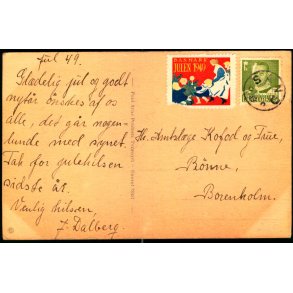 Jul 49.
Glædelig jul og godt
nytår ønskes af os
alle, det går nogen-
lunde med synet.
Tak for julehilsen
sidste år.
Venlig hilsen,
J. Dalberg.
DANMARK
JULEN 1949
Hr. Amtslæge Kofod og Frue,
Rönne,
Bornholm.